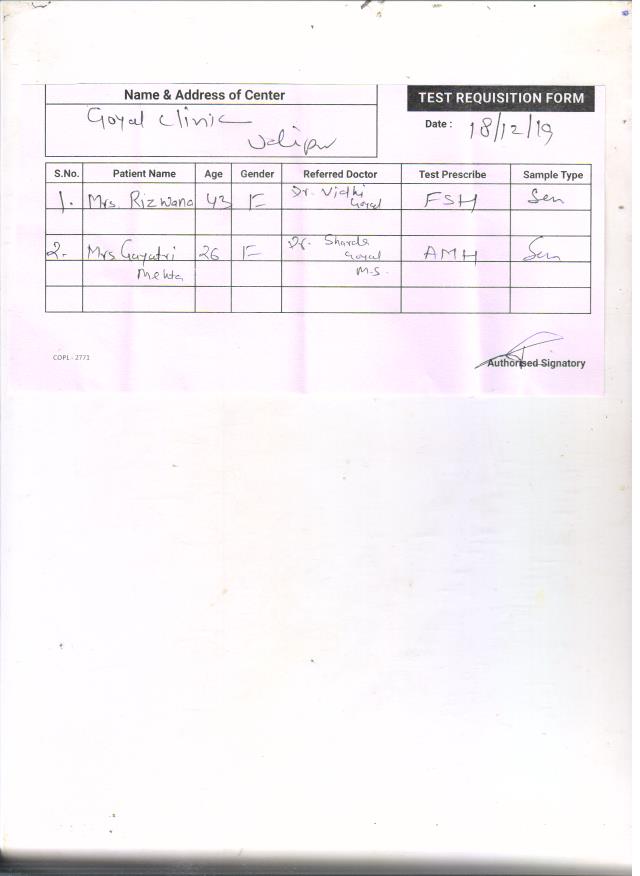 Name & Address of Center
TEST REQUISITION FORM
Goyal Clinic
Udipur
Date : 18/12/19
S.No. Patient Name Age Gender Referred Doctor Test Prescribe Sample Type
1. Mrs. Rizwana 43 F Dr. Vidhi FSH Ser
Goyal
2. Mrs Gayatri 26 F Dr. Sharda AMH Ser
Goyal
Mehta M.S.
COPL - 2771
Authorised Signatory